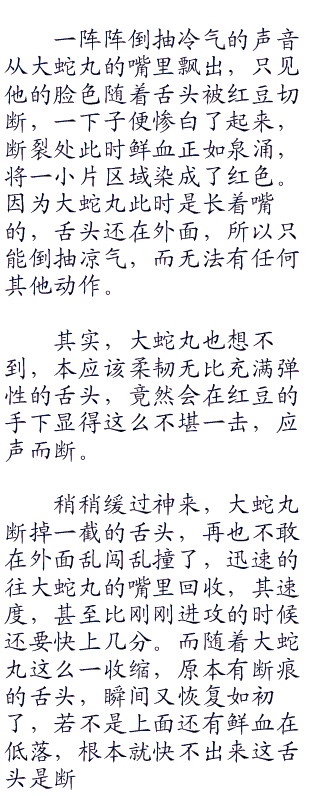 一阵阵倒抽冷气的声音
从大蛇丸的嘴里飘出，只见
他的脸色随着舌头被红豆切
断，一下子便惨白了起来，
断裂处此时鲜血正如泉涌，
将一小片区域染成了红色。
因为大蛇丸此时是长着嘴
的，舌头还在外面，所以只
能倒抽凉气，而无法有任何
其他动作。
其实，大蛇丸也想不
到，本应该柔韧无比充满弹
性的舌头，竟然会在红豆的
手下显得这么不堪一击，应
声而断。
稍稍缓过神来，大蛇丸
断掉一截的舌头，再也不敢
在外面乱闯乱撞了，迅速的
往大蛇丸的嘴里回收，其速
度，甚至比刚刚进攻的时候
还要快上几分。而随着大蛇
丸这么一收缩，原本有断痕
的舌头，瞬间又恢复如初
了，若不是上面还有鲜血在
低落，根本就快不出来这舌
头是断